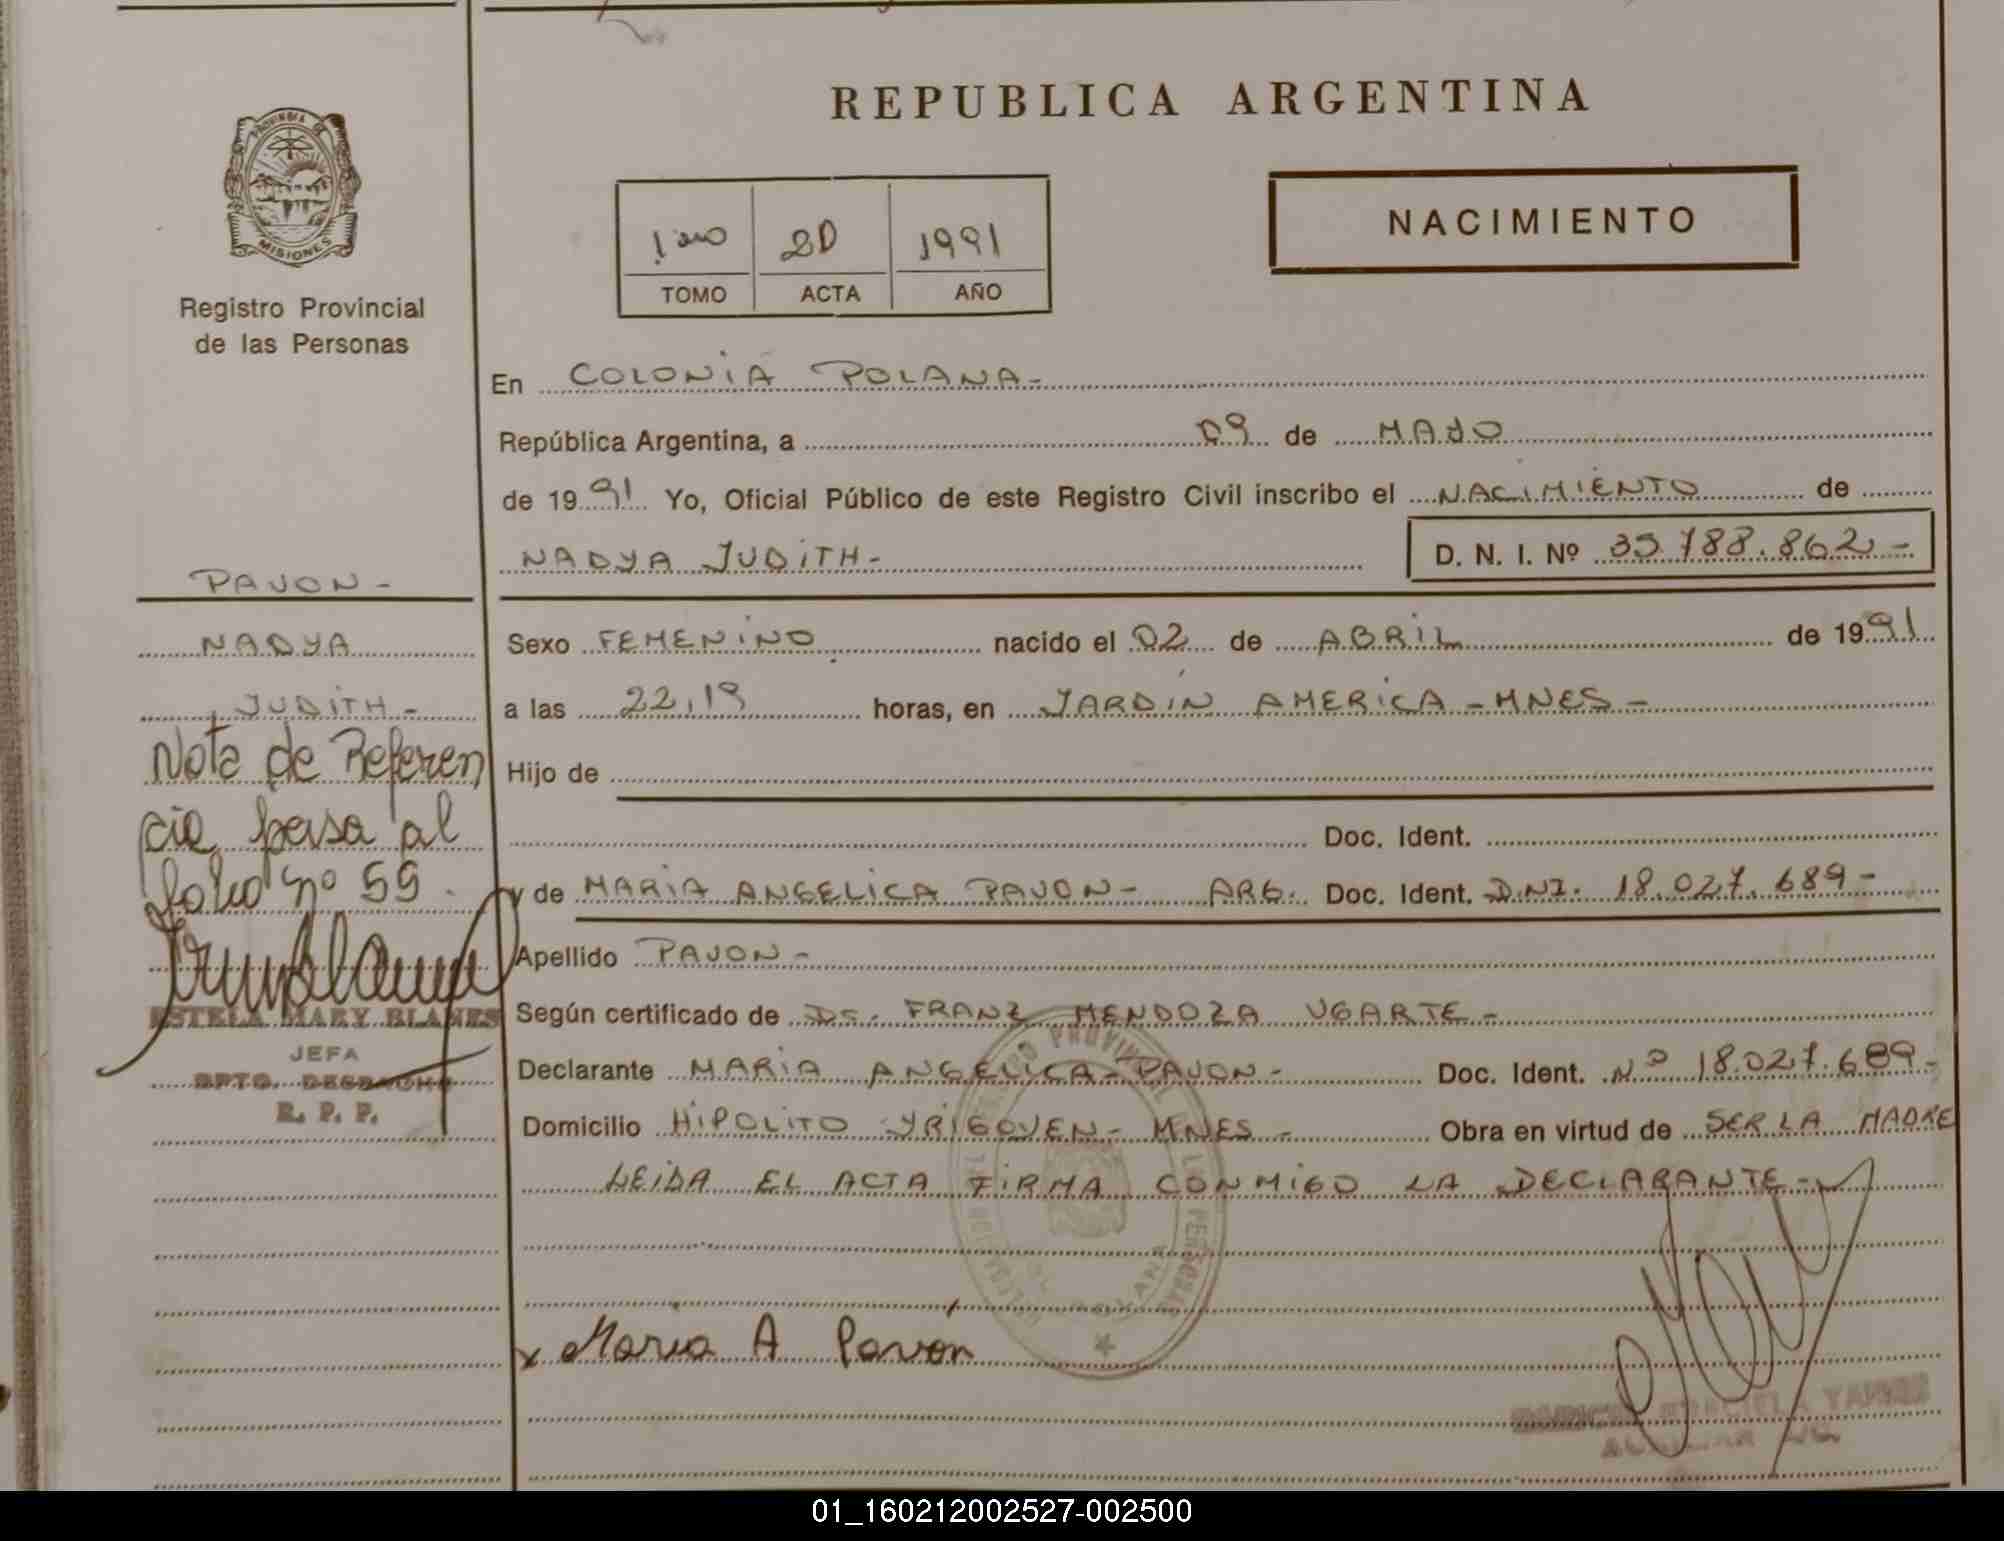 REPUBLICA ARGENTINA
PROVINCIA DE
MISIONES
Registro Provincial
de las Personas
1ero 20 1991
TOMO ACTA AÑO
NACIMIENTO
En COLONIA POLANA-
República Argentina, a 09 de MAYO
de 1991 Yo, Oficial Público de este Registro Civil inscribo el NACIMIENTO de
NADYA JUDITH-
D. N. I. Nº 35.788.862-
PAVON-
NADYA
JUDITH-
Nota de Referen
cia pasa al
folio nº 59.
ESTELA MARY BLANES
JEFA
DPTO. DESPACHO
R. P. P.
Sexo FEMENINO nacido el 02 de ABRIL de 1991
a las 22,19 horas, en JARDIN AMERICA-MNES-
Hijo de
Doc. Ident.
y de MARIA ANGELICA PAVON- ARG. Doc. Ident. D.N.I. 18.027.689-
Apellido PAVON-
Según certificado de Dr. FRANZ MENDOZA UGARTE-
Declarante MARIA ANGELICA-PAVON- Doc. Ident. Nº 18.027.689-
Domicilio HIPOLITO YRIGOYEN- MNES- Obra en virtud de SER LA MADRE
LEIDA EL ACTA FIRMA CONMIGO LA DECLARANTE-
x Maria A Pavón
YANNES
01_160212002527-002500